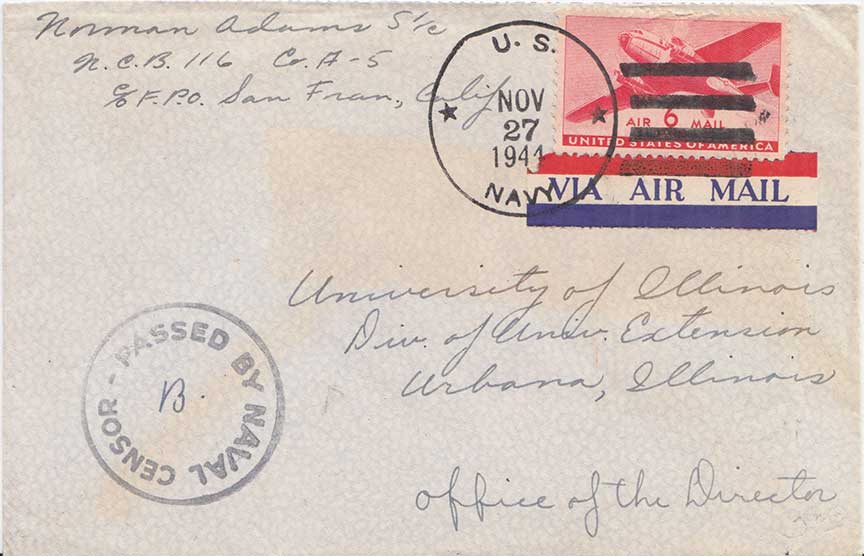 Norman Adams S1/c
N.C.B. 116 Co. A-5
c/o F.P.O. San Fran, Calif
U. S.
NOV
27
1944
NAVY
6
AIR MAIL
UNITED STATES OF AMERICA
VIA AIR MAIL
University of Illinois
Div. of Univ. Extension
Urbana, Illinois
PASSED BY NAVAL CENSOR -
B.
Office of the Director